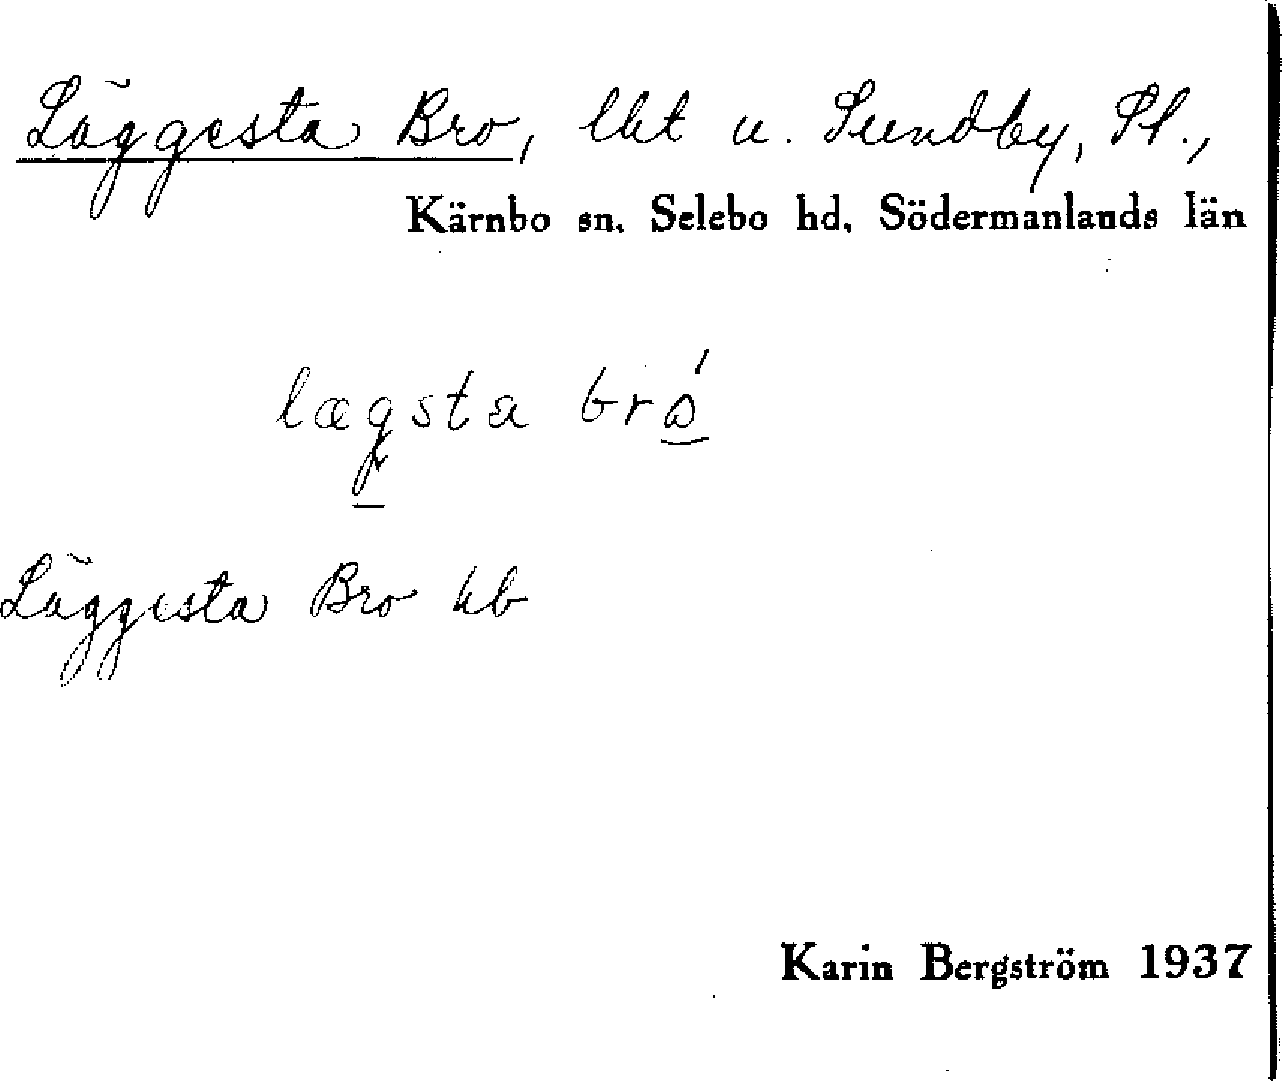 Läggesta Bro, lht u. Sundby, Pl.,
Kärnbo sn. Selebo hd. Södermanlands län
lægsta bró
Läggesta Bro kb
Karin Bergström 1937